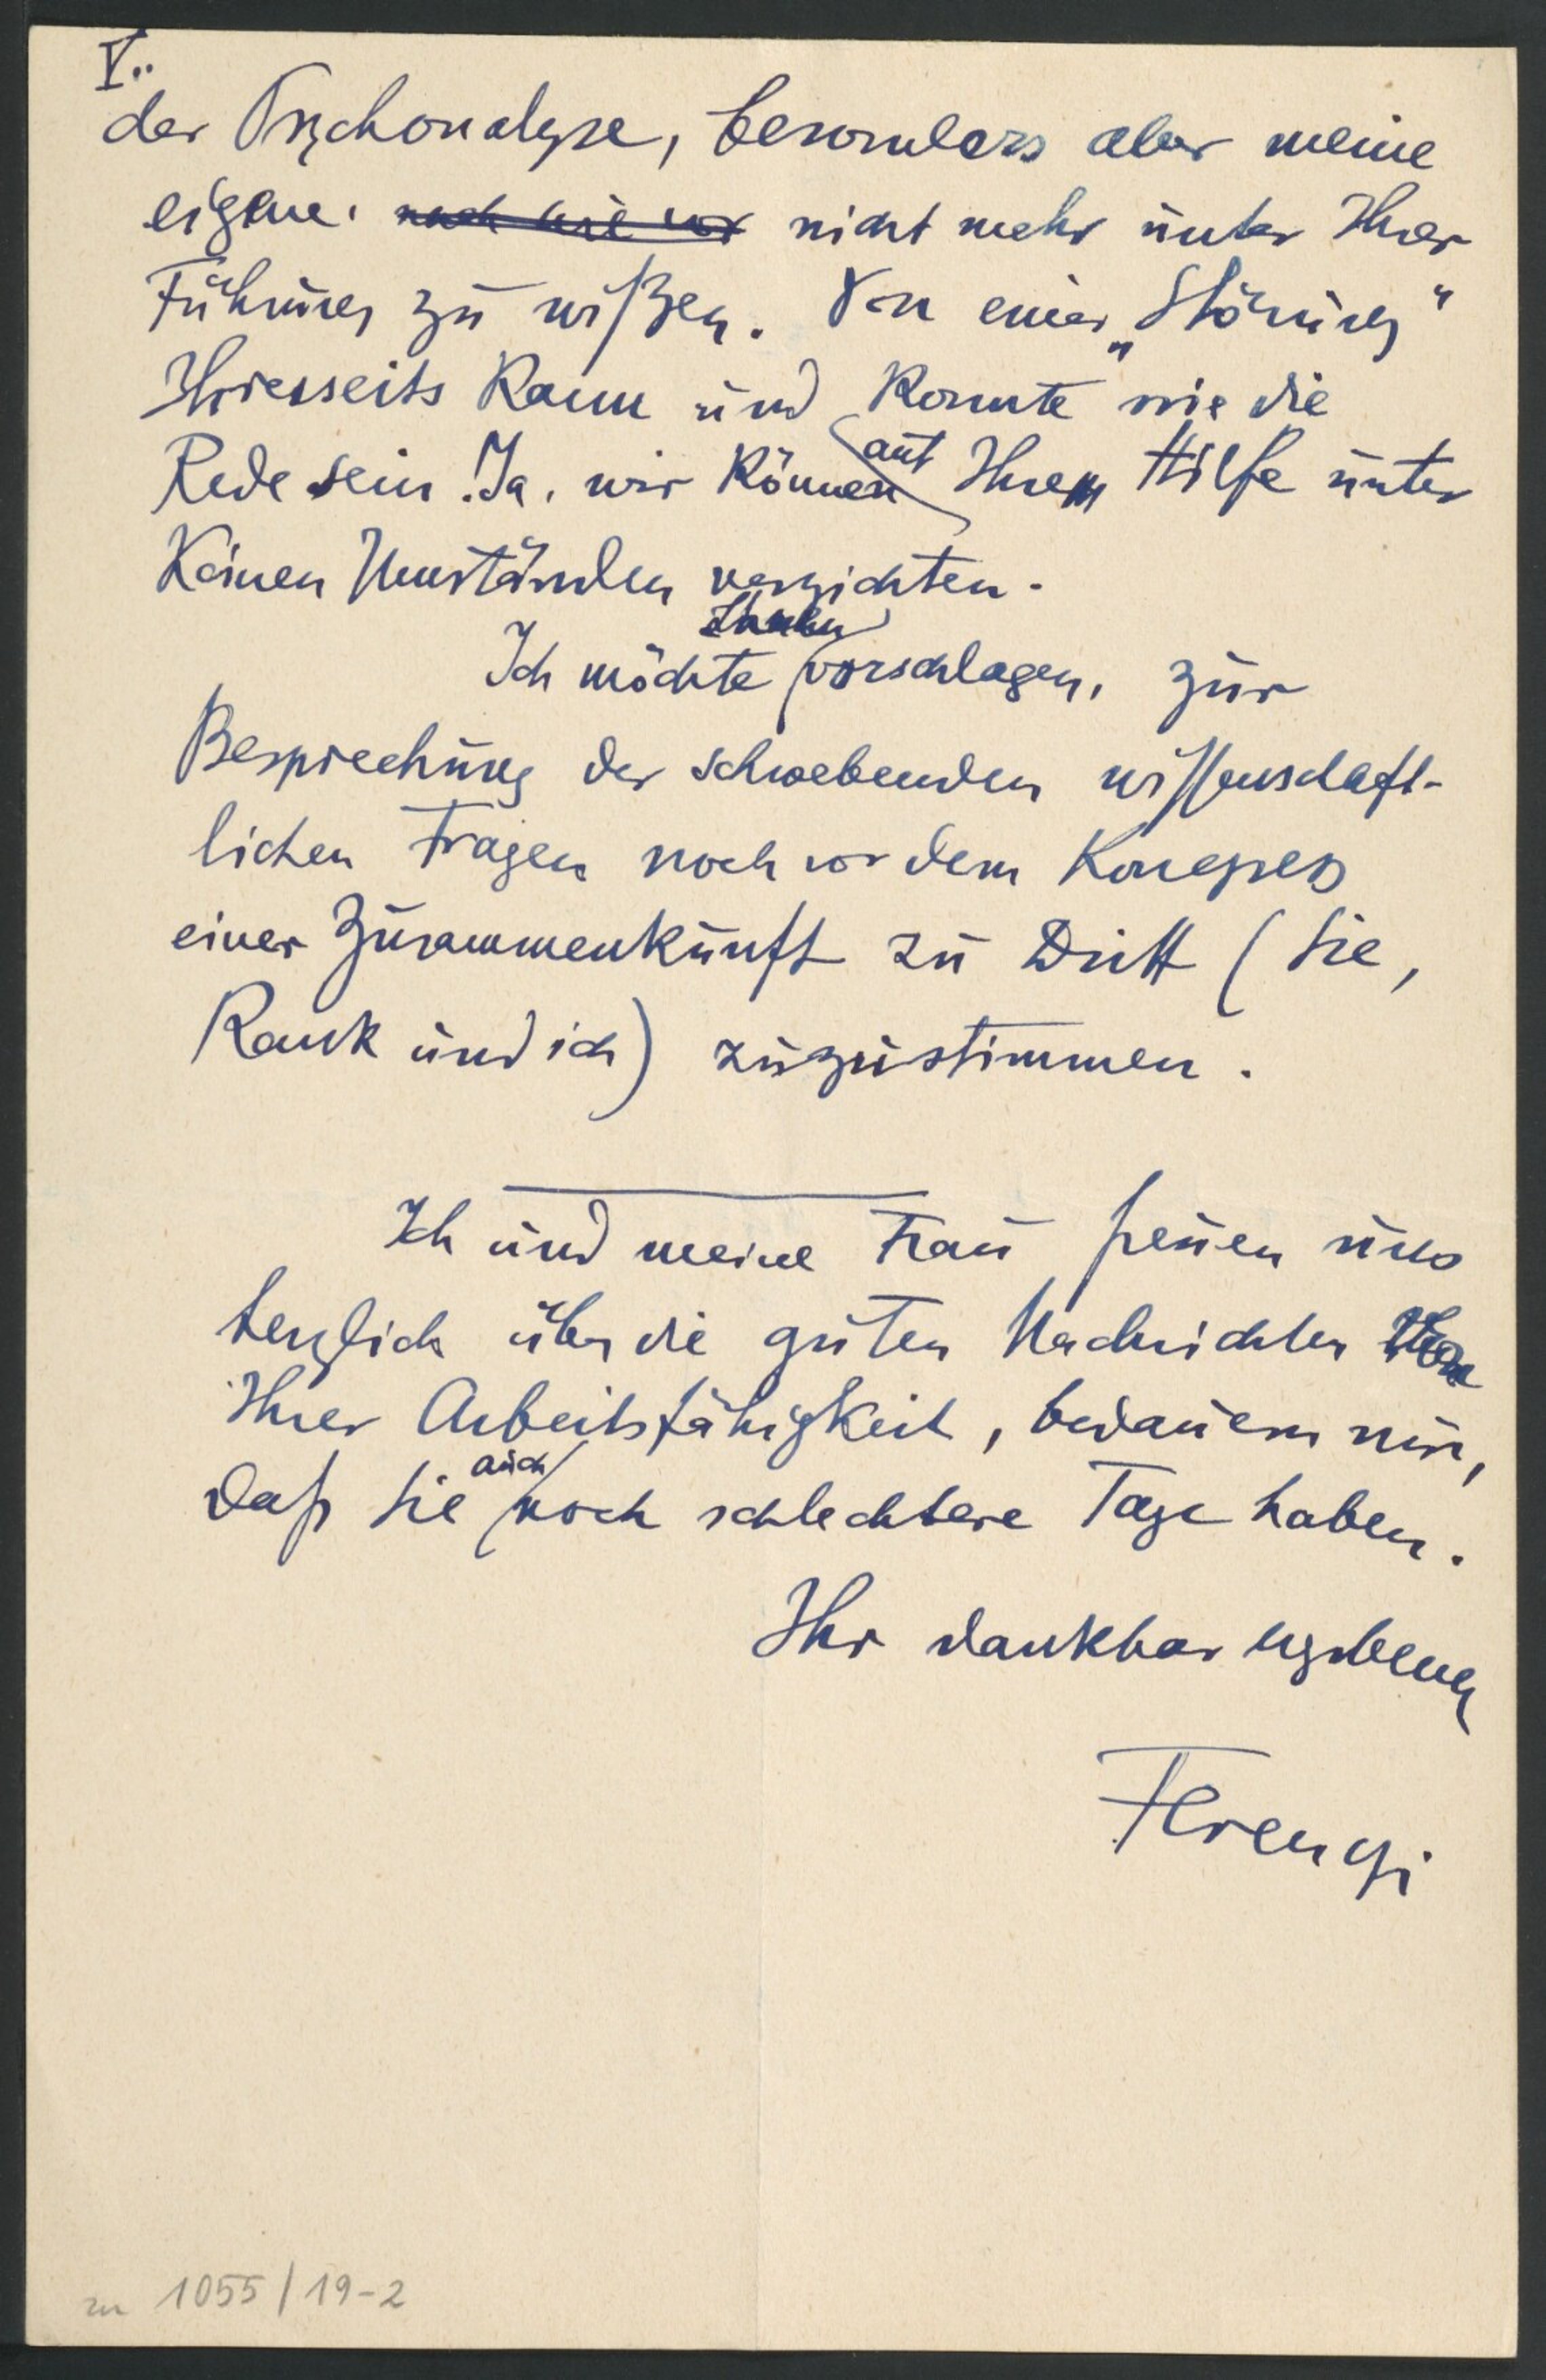 V..
der Psychonalyse, besonders aber meine
eigene, nach wie vor nicht mehr unter Ihrer
Führung zu wißen. Von einer „Störung“
Ihrerseits kann und konnte nie die
Rede sein. Ja, wir können auf Ihrem Hilfe unter
Keinen Umständen verzichten.
Ich möchte Ihnen vorschlagen, zur
Besprechung der schwebenden wissenschaft-
lichen Fragen noch vor dem Kongress
einer Zusammenkunft zu Dritt (Sie,
Rank und ich) zuzustimmen.
Ich und meine Frau freuen uns
herzlich über die guten Nachrichten von
Ihrer Arbeitsfähigkeit, bedauern nur,
daß Sie auch noch schlechtere Tage haben.
Ihr dankbar ergebener
Ferenczi
zu 1055/19-2